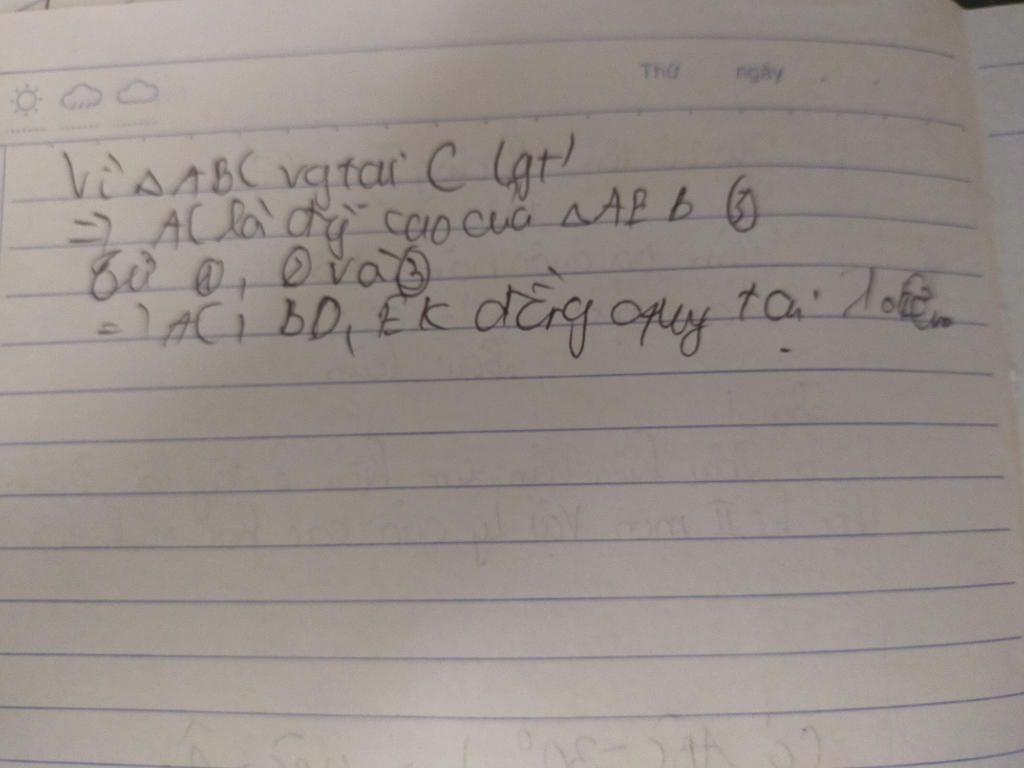 Thứ ngày
Vì △ABC vg tại C (gt)
=> AC là đg cao của △AEB ③
Từ ①, ② và ③
=> AC, BD, EK đồng quy tại 1 điểm